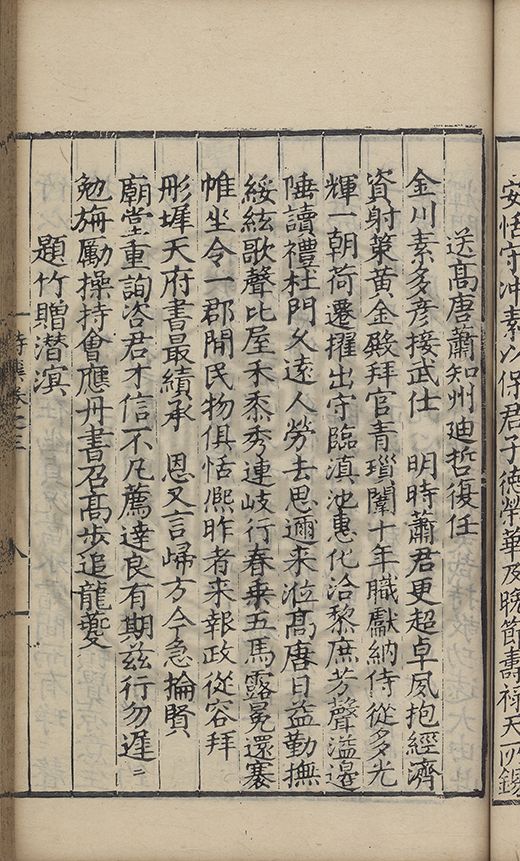 安恬守冲素以保君子德榮華及晚節壽祿天所錫
送高唐蕭知州廸哲復任
金川素多彥接武仕　明時蕭君更超卓夙抱經濟
資射策黃金殿拜官青瑣闥十年職獻納侍從多光
輝一朝荷遷擢出守臨滇池惠化洽黎庶芳聲溢邊
陲讀禮杜門久遠人勞去思邇来涖髙唐日益勤撫
綏絃歌聲比屋禾黍秀連岐行春乗五馬露冕還褰
帷坐令一郡間民物俱恬熈昨者来報政從容拜
彤墀天府書最績承　恩又言歸方今急掄賢
廟堂重詢咨君才信不凡薦達良有期兹行勿遲〻
勉旃勵操持會應丹書召髙步追龍夔
題竹贈潛溟
卷之三　八